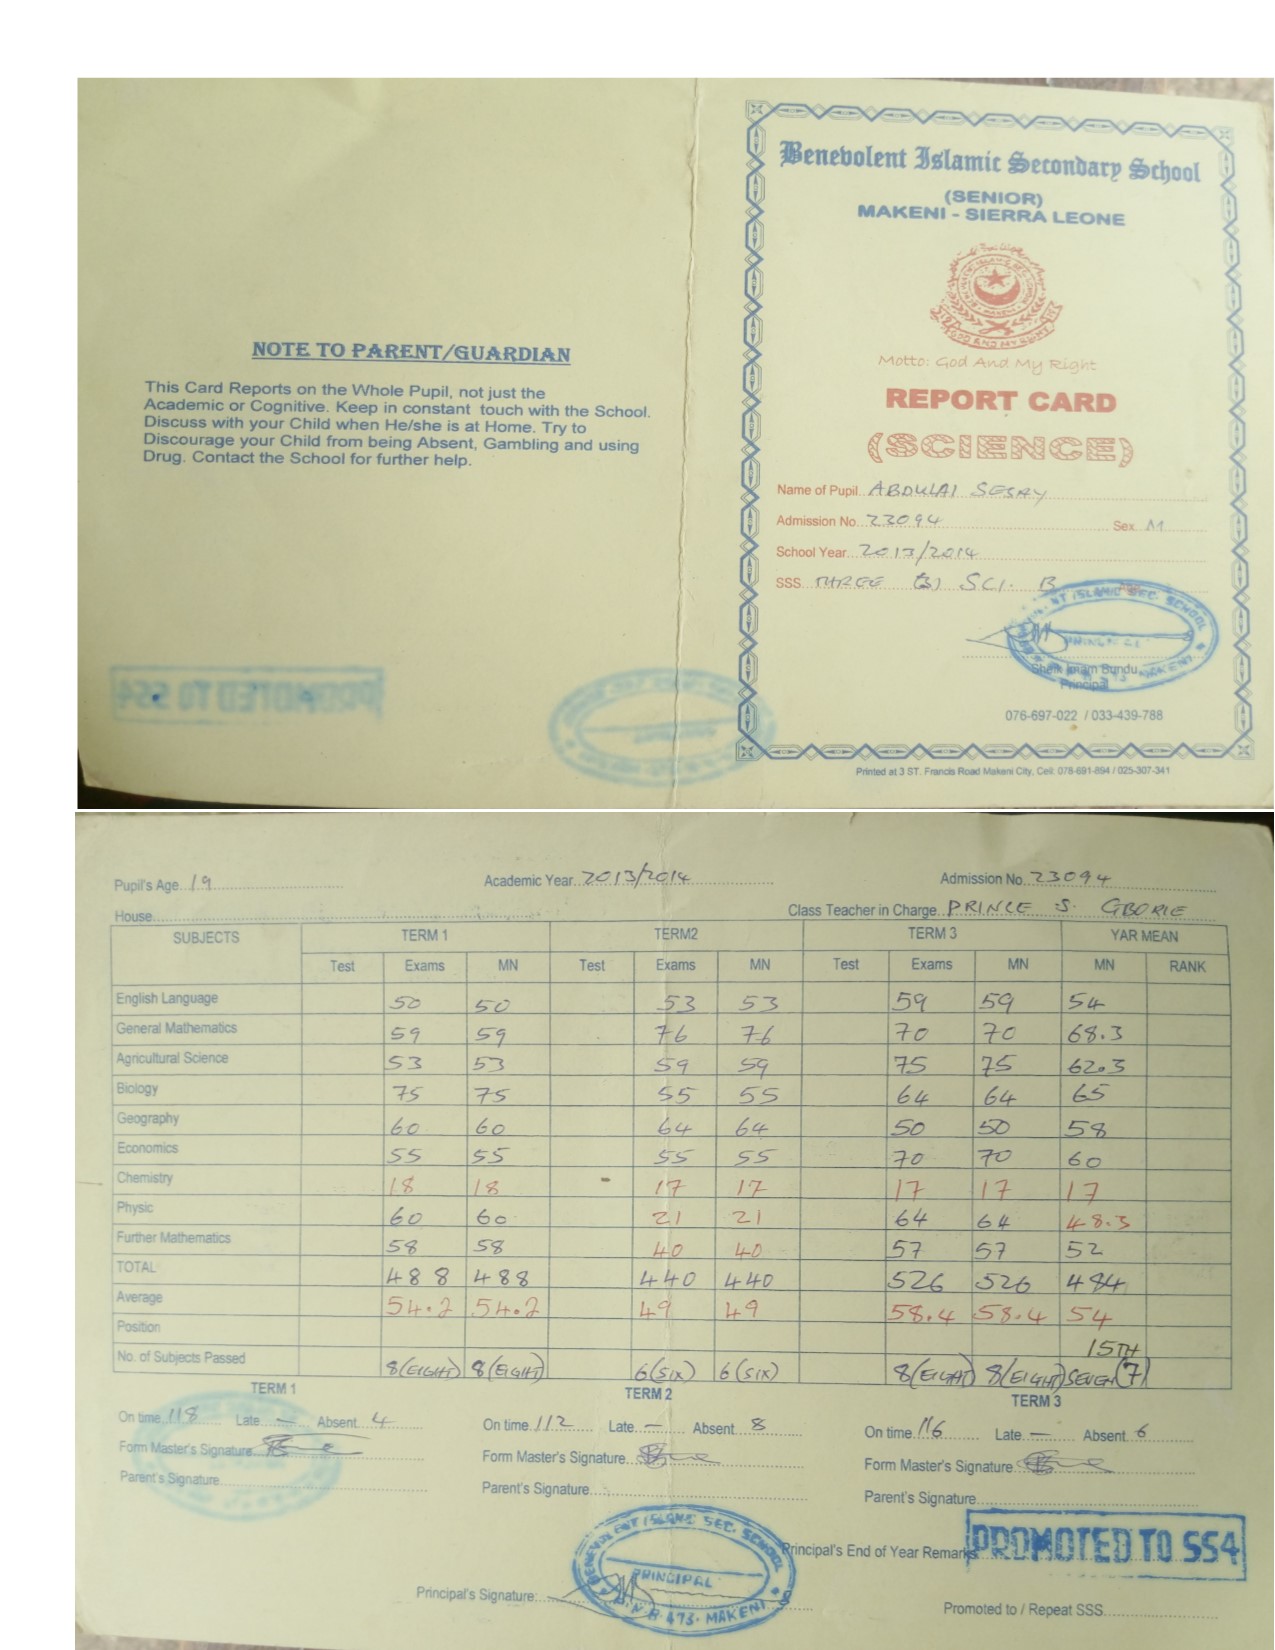 NOTE TO PARENT/GUARDIAN
This Card Reports on the Whole Pupil, not just the
Academic or Cognitive. Keep in constant touch with the School.
Discuss with your Child when He/she is at Home. Try to
Discourage your Child from being Absent, Gambling and using
Drug. Contact the School for further help.
PROMOTED TO SS4
Benevolent Islamic Secondary School
(SENIOR)
MAKENI - SIERRA LEONE
GOD AND MY RIGHT
Motto: God And My Right
REPORT CARD
(SCIENCE)
Name of Pupil ABDULAI SESAY
Admission No. 23094 Sex M
School Year 2013/2014
SSS THREE (3) SCI. B
ISLAMIC SEC. SCHOOL
PRINCIPAL
MAKENI
Sheik Imam Bundu
Principal
076-697-022 / 033-439-788
Printed at 3 ST. Francis Road Makeni City, Cell: 078-691-894 / 025-307-341
Pupil's Age 19 Academic Year 2013/2014 Admission No. 23094
House Class Teacher in Charge PRINCE S. GBORIE
SUBJECTS TERM 1 TERM2 TERM 3 YAR MEAN
Test Exams MN Test Exams MN Test Exams MN MN RANK
English Language 50 50 53 53 59 59 54
General Mathematics 59 59 76 76 70 70 68.3
Agricultural Science 53 53 59 59 75 75 62.3
Biology 75 75 55 55 64 64 65
Geography 60 60 64 64 50 50 58
Economics 55 55 55 55 70 70 60
Chemistry 18 18 17 17 17 17 17
Physic 60 60 21 21 64 64 48.3
Further Mathematics 58 58 40 40 57 57 52
TOTAL 488 488 440 440 526 526 484
Average 54.2 54.2 49 49 58.4 58.4 54
Position 15TH
No. of Subjects Passed 8(EIGHT) 8(EIGHT) 6(SIX) 6(SIX) 8(EIGHT) 8(EIGHT) SEVEN(7)
TERM 1 TERM 2 TERM 3
On time 118 Late — Absent 4 On time 112 Late — Absent 8 On time 116 Late — Absent 6
Form Master's Signature Form Master's Signature Form Master's Signature
Parent's Signature Parent's Signature Parent's Signature
BENEVOLENT ISLAMIC SEC. SCHOOL
PRINCIPAL
473. MAKENI
Principal's End of Year Remarks PROMOTED TO SS4
Principal's Signature:
Promoted to / Repeat SSS